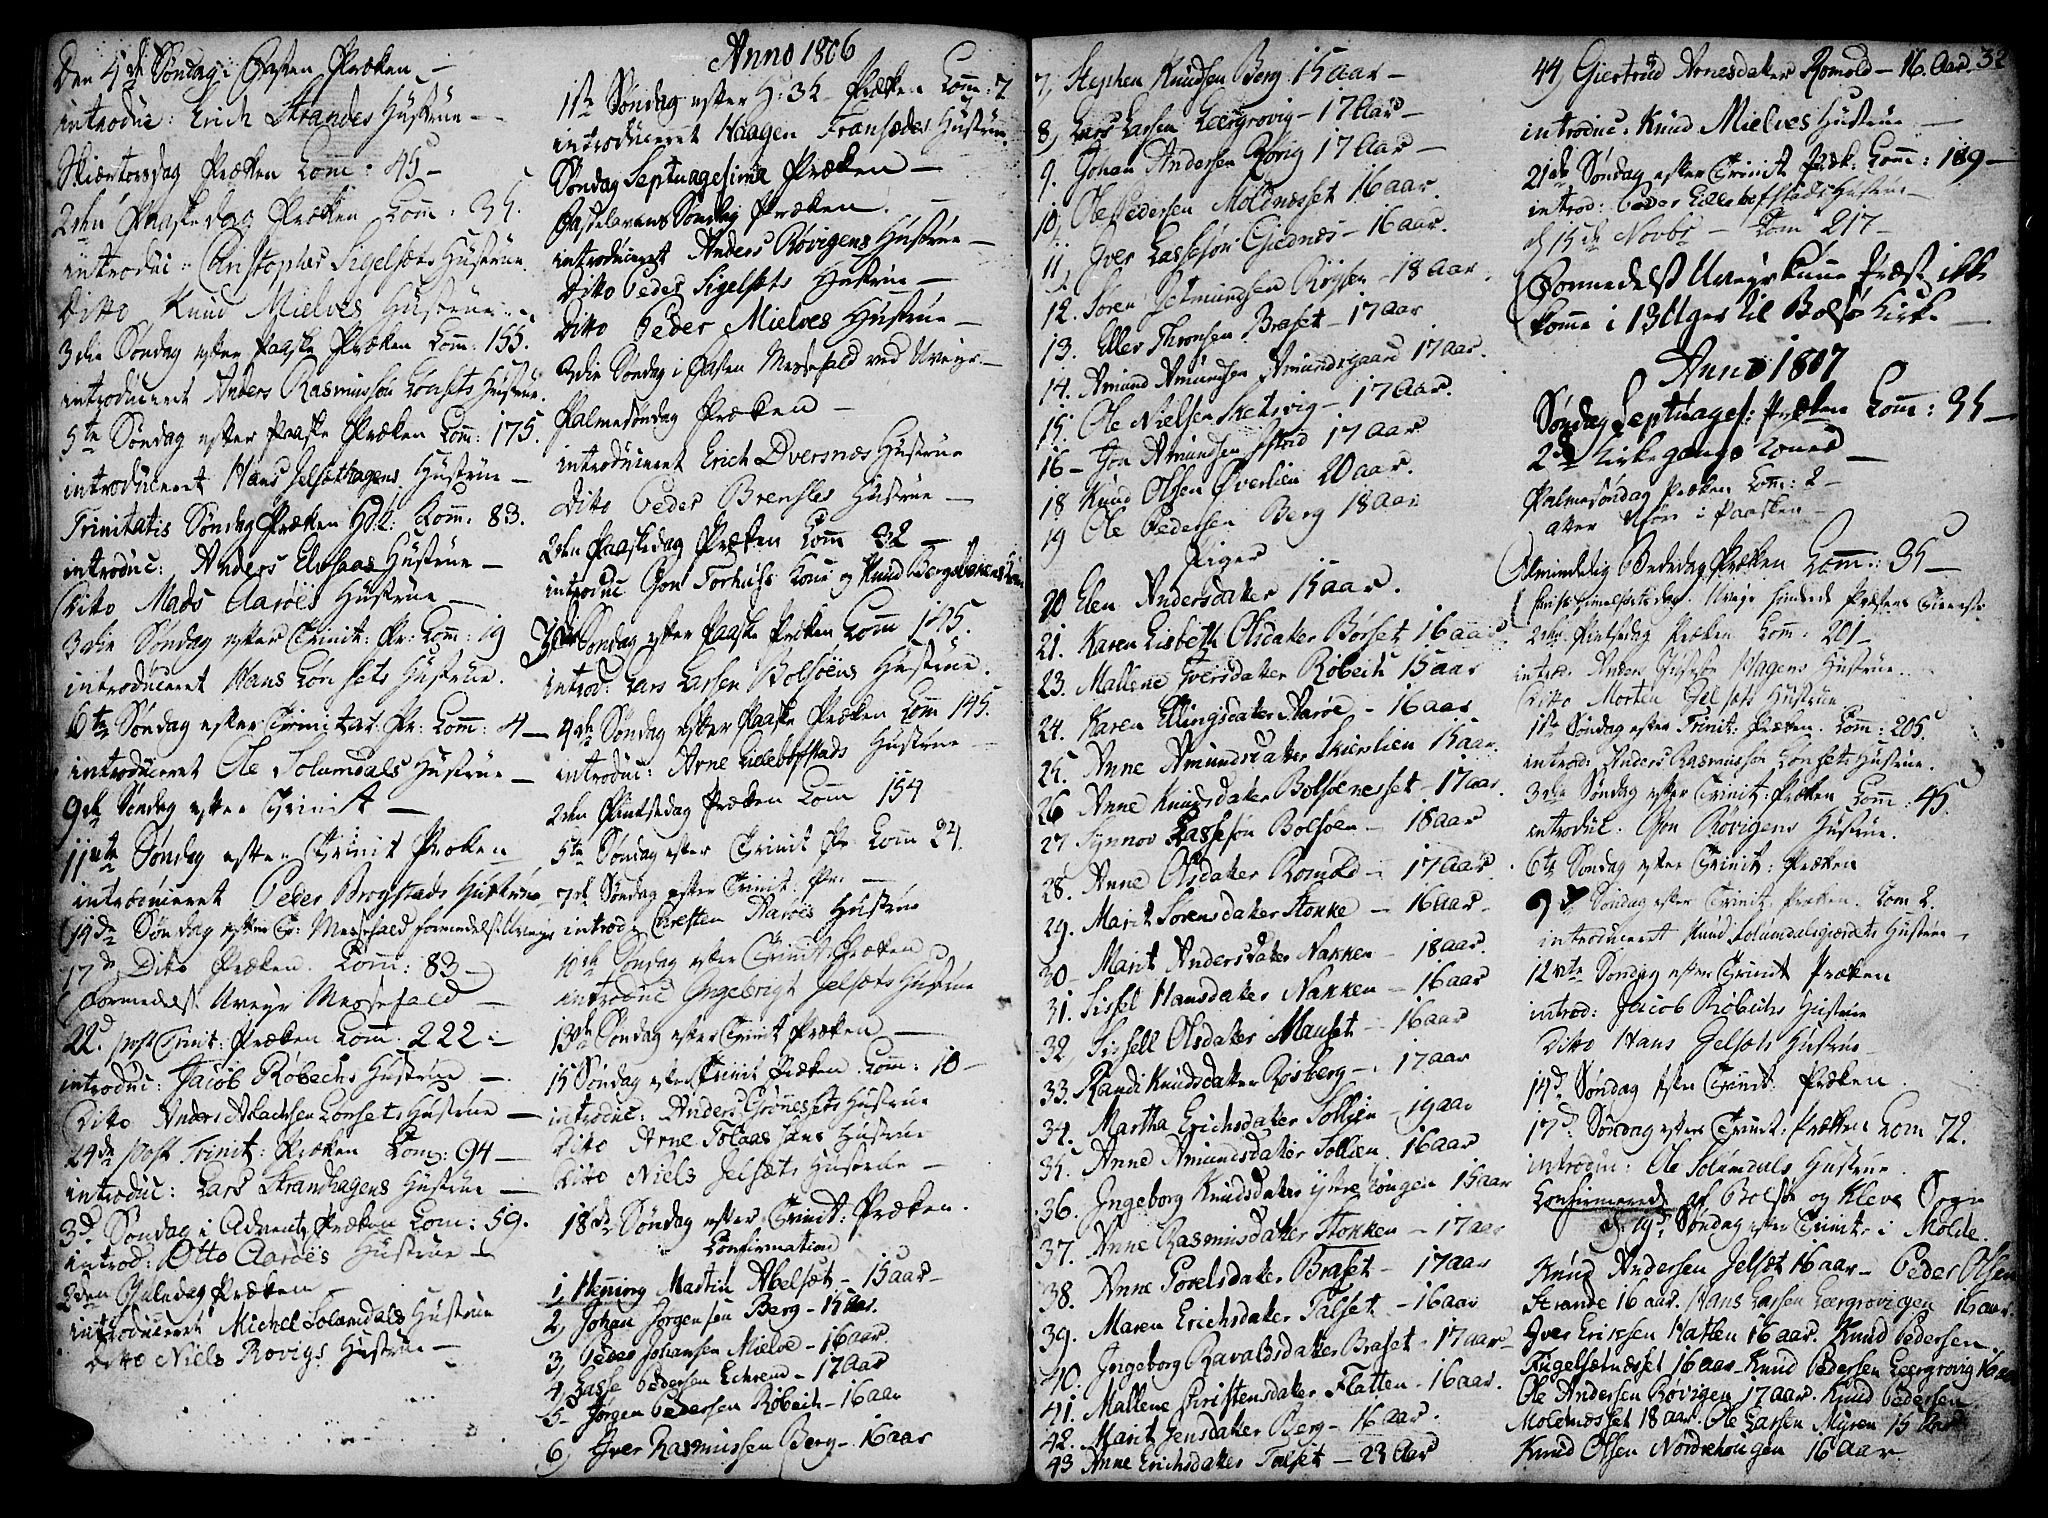 Den 4de Søndag i Fasten Præken –
introduc: Erich Strandes Hustrue –
Skiærtorsdag Præken Com: 45 –
2den Paaskedag Præken Com: 35.
introduc: Christopher Sigelsets Hustrue
Ditto Knud Mielves Hustrue –
3die Søndag efter Paaske Præken Com: 155.
introduceret Anders Rasmussøn Lønsets Hustrue.
5te Søndag efter Paaske Præken Com: 175.
introduceret Hans Jelsethagens Hustrue –
Trinitatis Søndag Præken Com: 83.
introduc: Anders Elvsaas Hustrue –
Dito Mads Aarøes Hustrue –
3die Søndag efter Trinit: Pr: Com: 19
introduceret Hans Lønsets Hustrue.
6te Søndag efter Trinitat. Pr: Com: 4 –
introduceret Ole Solemdals Hustrue –
9de Søndag efter Trinit –
11te Søndag efter Trinit Præken
introduceret Peder Brogstads Hustrue
14de Søndag efter Tr: Messefald formedelst Uveyr
17de Dito Præken. Com: 83 –
Formedelst Uveyr Messefald –
22d post Trinit: Præken Com. 222 –
introduc: Jacob Røbechs Hustrue –
Dito Anders Lønsets Hustrue –
24de post Trinit: Præken Com: 94 –
introduc: Lars Strandhagens Hustrue –
3d Søndag i Advent Præken Com: 59.
introd: Otto Aarøes Hustrue –
2den Juledag Præken –
introduceret Michel Solemdals Hustrue
Dito Niels Røvigs Hustrue –
Anno 1806
1ste Søndag efter H: 3K Præken Com: 7
introduceret Haagen Hustrue.
Søndag Septuagesima Præken –
Fastelavens Søndag Præken. –
introduceret Anders Røvigens Hustrue –
Dito Peder Sigelsets Hustrue –
Dito Peder Mielves Hustrue –
3die Søndag i Fasten Messefald ved Uveyr –
Palmesøndag Præken –
introduceret Erich Dversnæs Hustrue
Dito Peder Hustrue –
2den Paaskedag Præken Com 32 –
introduc Jon Torhuss Kone og Knud
3die Søndag efter Paaske Præken Com 175.
introd: Lars Larsen Bolsøens Hustrue.
4de Søndag efter Paaske Præken Com 145.
introduc: Arne Lillebostads Hustrue –
2den Pintsedag Præken Com 154
5te Søndag efter Trinit Pr: Com 24.
7de Søndag efter Trinit: Pr: –
introd: Christen Aarøes Hustrue
10de Søndag efter Trinit: Præken
introduc Ingebrigt Jelsets Hustrue
13de Søndag efter Trinit Præken –
15 Søndag efter Trinit Præken Com: 10 –
introduc: Anders Grønnesets Hustrue
Dito Arne Tolaas hans Hustrue
Dito Niels Jelsets Hustrue –
18de Søndag efter Trinit: Præken.
Confirmation
1, Henning Martin Abelsæt – 15 aar –
2, Johan Jørgensen Berg – 15 Aar.
3, Peder Johansen Mielve – 16 aar.
4, Lasse Pedersen Echrem – 17 Aar
5 Jørgen Pedersen Røbech – 16 aar
6, Iver Rasmussen Berg – 16 aar
7, Stephen Knudsen Berg 15 aar –
8, Lars Larsen Leergrovig – 17 Aar –
9. Johan Andersen Røvig 17 Aar –
10, Ole Pedersen Moldnæsset 16 aar.
11, Iver Lassesøn Giednæs – 16 aar.
12. Sören Jetmundsen – 18 Aar.
13. Eller Thronsen Braset – 17 aar
14. Amund Amundsen Amundsgaard 17 aar.
15. Ole Nielsen – 17 Aar.
16 – Jon Amundsen 17 Aar
18 Knud Olsen Øverlien 20 aar.
19 Ole Pedersen Berg 18 Aar
Piger
20 Elen Andersdater 15 aar.
21. Karen Lisbeth Olsdater Børset 16 aar
23. Mallene Iversdater Røbech 15 aar
24. Karen Ellingsdater Aarøe – 16 aar
25. Anne Amundsdater Skierlien 15 aar.
26 Anne Knudsdater Bolsøenesset – 17 aar.
27 Synnov Lassesøn Bolsøen – 16 aar
28. Anne Olsdater Romold – 17 Aar.
29. Marit Sörensdater Stokke – 16 aar
30 – Marit Andersdater Nakken – 18 aar.
31. Sissel Hansdater Nakken – 16 aar
32, Sissell Olsdater Mauset – 16 aar
33. Randi Knudsdatter Røsberg – 17 aar
34. Martha Erichsdater Sollien – 19 aar
35. Anne Amundsdater Sollien. 16 aar
36. Ingeborg Knudsdater ytre hougen 15 aar
37. Anne Rasmusdater Stokken – 17 aar
38. Anne Porelsdater Braset – 17 aar
39. Maren Erichsdater Talset – 16 aar
40. Ingeborg Ravaldsdater Braset – 17 aar –
41. Mallene Christensdater Flatten – 16 aar.
42. Marit Jensdater Berg – 16 aar.
43 Anne Erichsdater Talset – 23 Aar
44, Giertrud Arnesdater Romold – 16. Aar. 32
introduc: Knud Mielves Hustrue –
21de Søndag efter Trinit Præk. Com: 189 –
introd: Peder Lillebostads Hustrue –
d 15de Novbr – Com 217 –
Formedelst Uveyr kunne Præst ikke
komme i 13 Uger til Bolsø Kirke –
Anno 1807
Søndag Septuages: Præken Com: 35 –
2de Kirkegangs Koner –
Palmesøndag Præken Com: 2 –
atter Uføre i Paasken –
Almindelig Bededag Præken Com: 35 –
Christi Himelfartsdag. Uveyr hindrede Præstens Tieneste
2den Pintsedag Præken Com: 201 –
introd: Anders Hagens Hustrue.
Dito Morten Gelsets Hustrue.
1ste Søndag efter Trinit: Præken. Com: 205
introd: Anders Rasmussøn Lønsets Hustrue.
3die Søndag efter Trinit: Præken Com: 45
introduc. Jon Røvigens Hustrue.
6te Søndag efter Trinit: Præken
9de Søndag efter Trinit. Præken. Com 2.
introduceret Knud Solemdalsgierdets Hustrue –
12vte Søndag efter Trinit Præken
introd: Jacob Røbechs Hustrue
Dito Hans Gelsets Hustrue
14d. Søndag efter Trinit. Præken.
17d: Søndag efter Trinit: Præken Com 72.
introduc: Ole Solemdals Hustrue.
Confirmerede af Bolsøe og Kleve Sogn
d. 19d Søndag efter Trinit: i Molde.
Knud Andersen Jelset 16 aar – Peder Olsen
Strande 16 aar. Hans Larsen Leergrovigen 16 aar.
Iver Ericksen Hatlen 16 aar. Knud Pedersen
Fugelsetnæsset 16 aar – Knud Pedersen Leergrovig 16 aar
Ole Andersen Røvigen 17 aar. Knud Pedersen
Moldnæsset 18 aar. Ole Larsen Myren 15 Aar
Knud Olsen Nordrehougen 16 Aar.